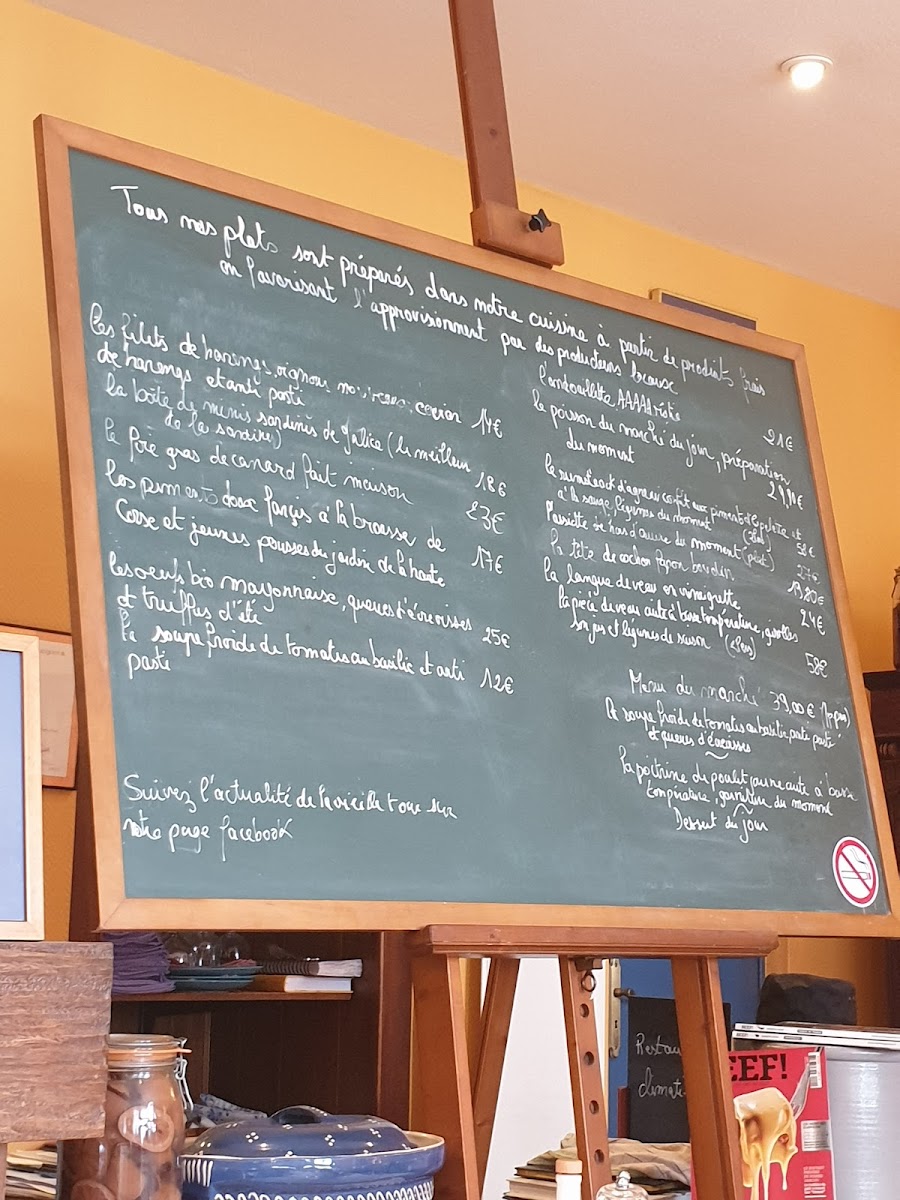 Tous nos plats sont préparés dans notre cuisine à partir de produits frais
en favorisant l'approvisionnement par des producteurs locaux
Les filets de harengs, oignons nouveaux, caviar
de harengs et anti pasti 14€
La boîte de minis sardines de Galice (le meilleur
de la sardine) 18€
Le foie gras de canard fait maison 23€
Les piments doux farçis à la brousse de
Corse et jeunes pousses du jardin de la haute 17€
Les oeufs bio mayonnaise, queues d'écrevisses
et truffes d'été 25€
La soupe froide de tomates au basilic et anti
pasti 12€
Suivez l'actualité de la vieille tour sur
notre page facebook
L'andouillette AAAAA rôtie 21€
Le poisson du marché du jour, préparation
du moment 24,90€
d'agneau confit aux piments d'Espelette et
à la sauge, légumes du moment 58€
L'assiette de hors d'œuvre du moment (plat) 27€
La tête de cochon façon boudin 19,80€
La langue de veau en vinaigrette 24€
La pièce de veau cuite à basse température, girolles
et légumes de saison (2 Pers) 58€
Menu du marché 39,00€
La soupe froide de tomates au basilic, anti pasti
et queues d'écrevisses
La poitrine de poulet jaune cuite à basse
température, garniture du moment
Dessert du jour
Restau
climati
EEF!